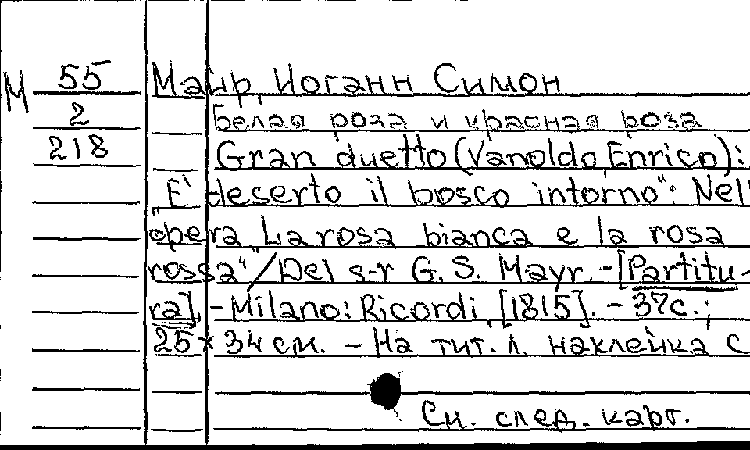 М 55 Майр, Иоганн Симон
2 Белая роза и красная роза
218 Gran duetto (Vanoldo, Enrico):
"E' deserto il bosco intorno": Nell'
opera "La rosa bianca e la rosa
rossa" / Del s-r G. S. Mayr. - [Partitu-
ra]. - Milano: Ricordi, [1815]. - 37с.;
25 x 34 см. - На тит. л. наклейка с
См. след. карт.